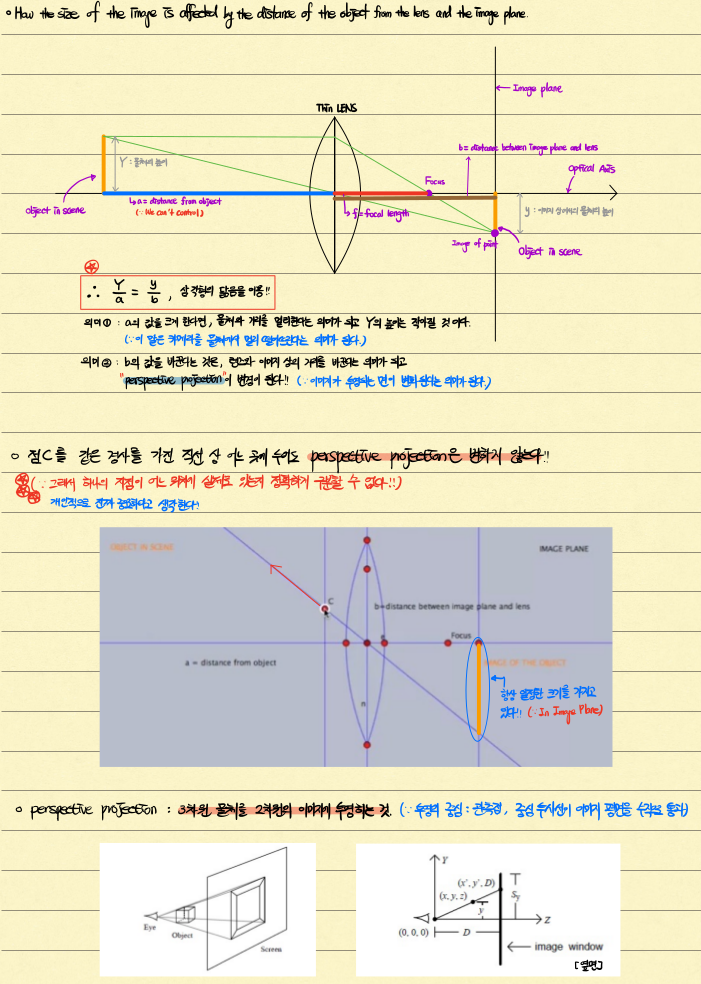 o How the size of the image is affected by the distance of the object from the lens and the image plane.
Image plane
Thin LENS
b = distance between image plane and lens
Y : 물체의 높이
Focus
Optical Axis
Object in scene
↳ a = distance from object
(∵ We can't control)
↳ f = focal length
y : 이미지 상에서의 물체의 높이
Image of point
Object in scene
∴ Y/a = y/b , 삼각형의 닮음을 이용!!
의미① : a의 값을 크게 한다면, 물체와 거리를 멀리한다는 의미가 되고 Y의 높이는 작아질 것이다.
(∵ 이 말은 카메라를 물체에서 멀리 떨어뜨린다는 의미가 된다.)
의미② : b의 값을 바꾼다는 것은, 렌즈와 이미지 상의 거리를 바꾼다는 의미가 되고
"perspective projection"이 변경이 된다!! (∵ 이미지가 투영되는 면이 변화된다는 의미가 된다.)
o 점C를 같은 경사를 가진 직선 상 어느 곳에 두어도 perspective projection은 변하지 않는다!!
(∵ 그래서 하나의 지점이 어느 위치에 실제로 있는지 정확하게 구분할 수 없다!!)
개인적으로 진짜 중요하다고 생각한다!!
OBJECT IN SCENE
IMAGE PLANE
C
b=distance between image plane and lens
Focus
a = distance from object
IMAGE OF THE OBJECT
항상 일정한 크기를 가지고
있다!! (∵ In Image Plane)
o perspective projection : 3차원 물체를 2차원의 이미지에 투영하는 것. (∵ 투영의 중심 : 관측점, 중심 투사선이 이미지 평면을 수직으로 통과)
Eye
Object
Screen
Y
(x', y', D)
(x, y, z)
y
Sy
Z
(0, 0, 0)
D
image window
[옆면]